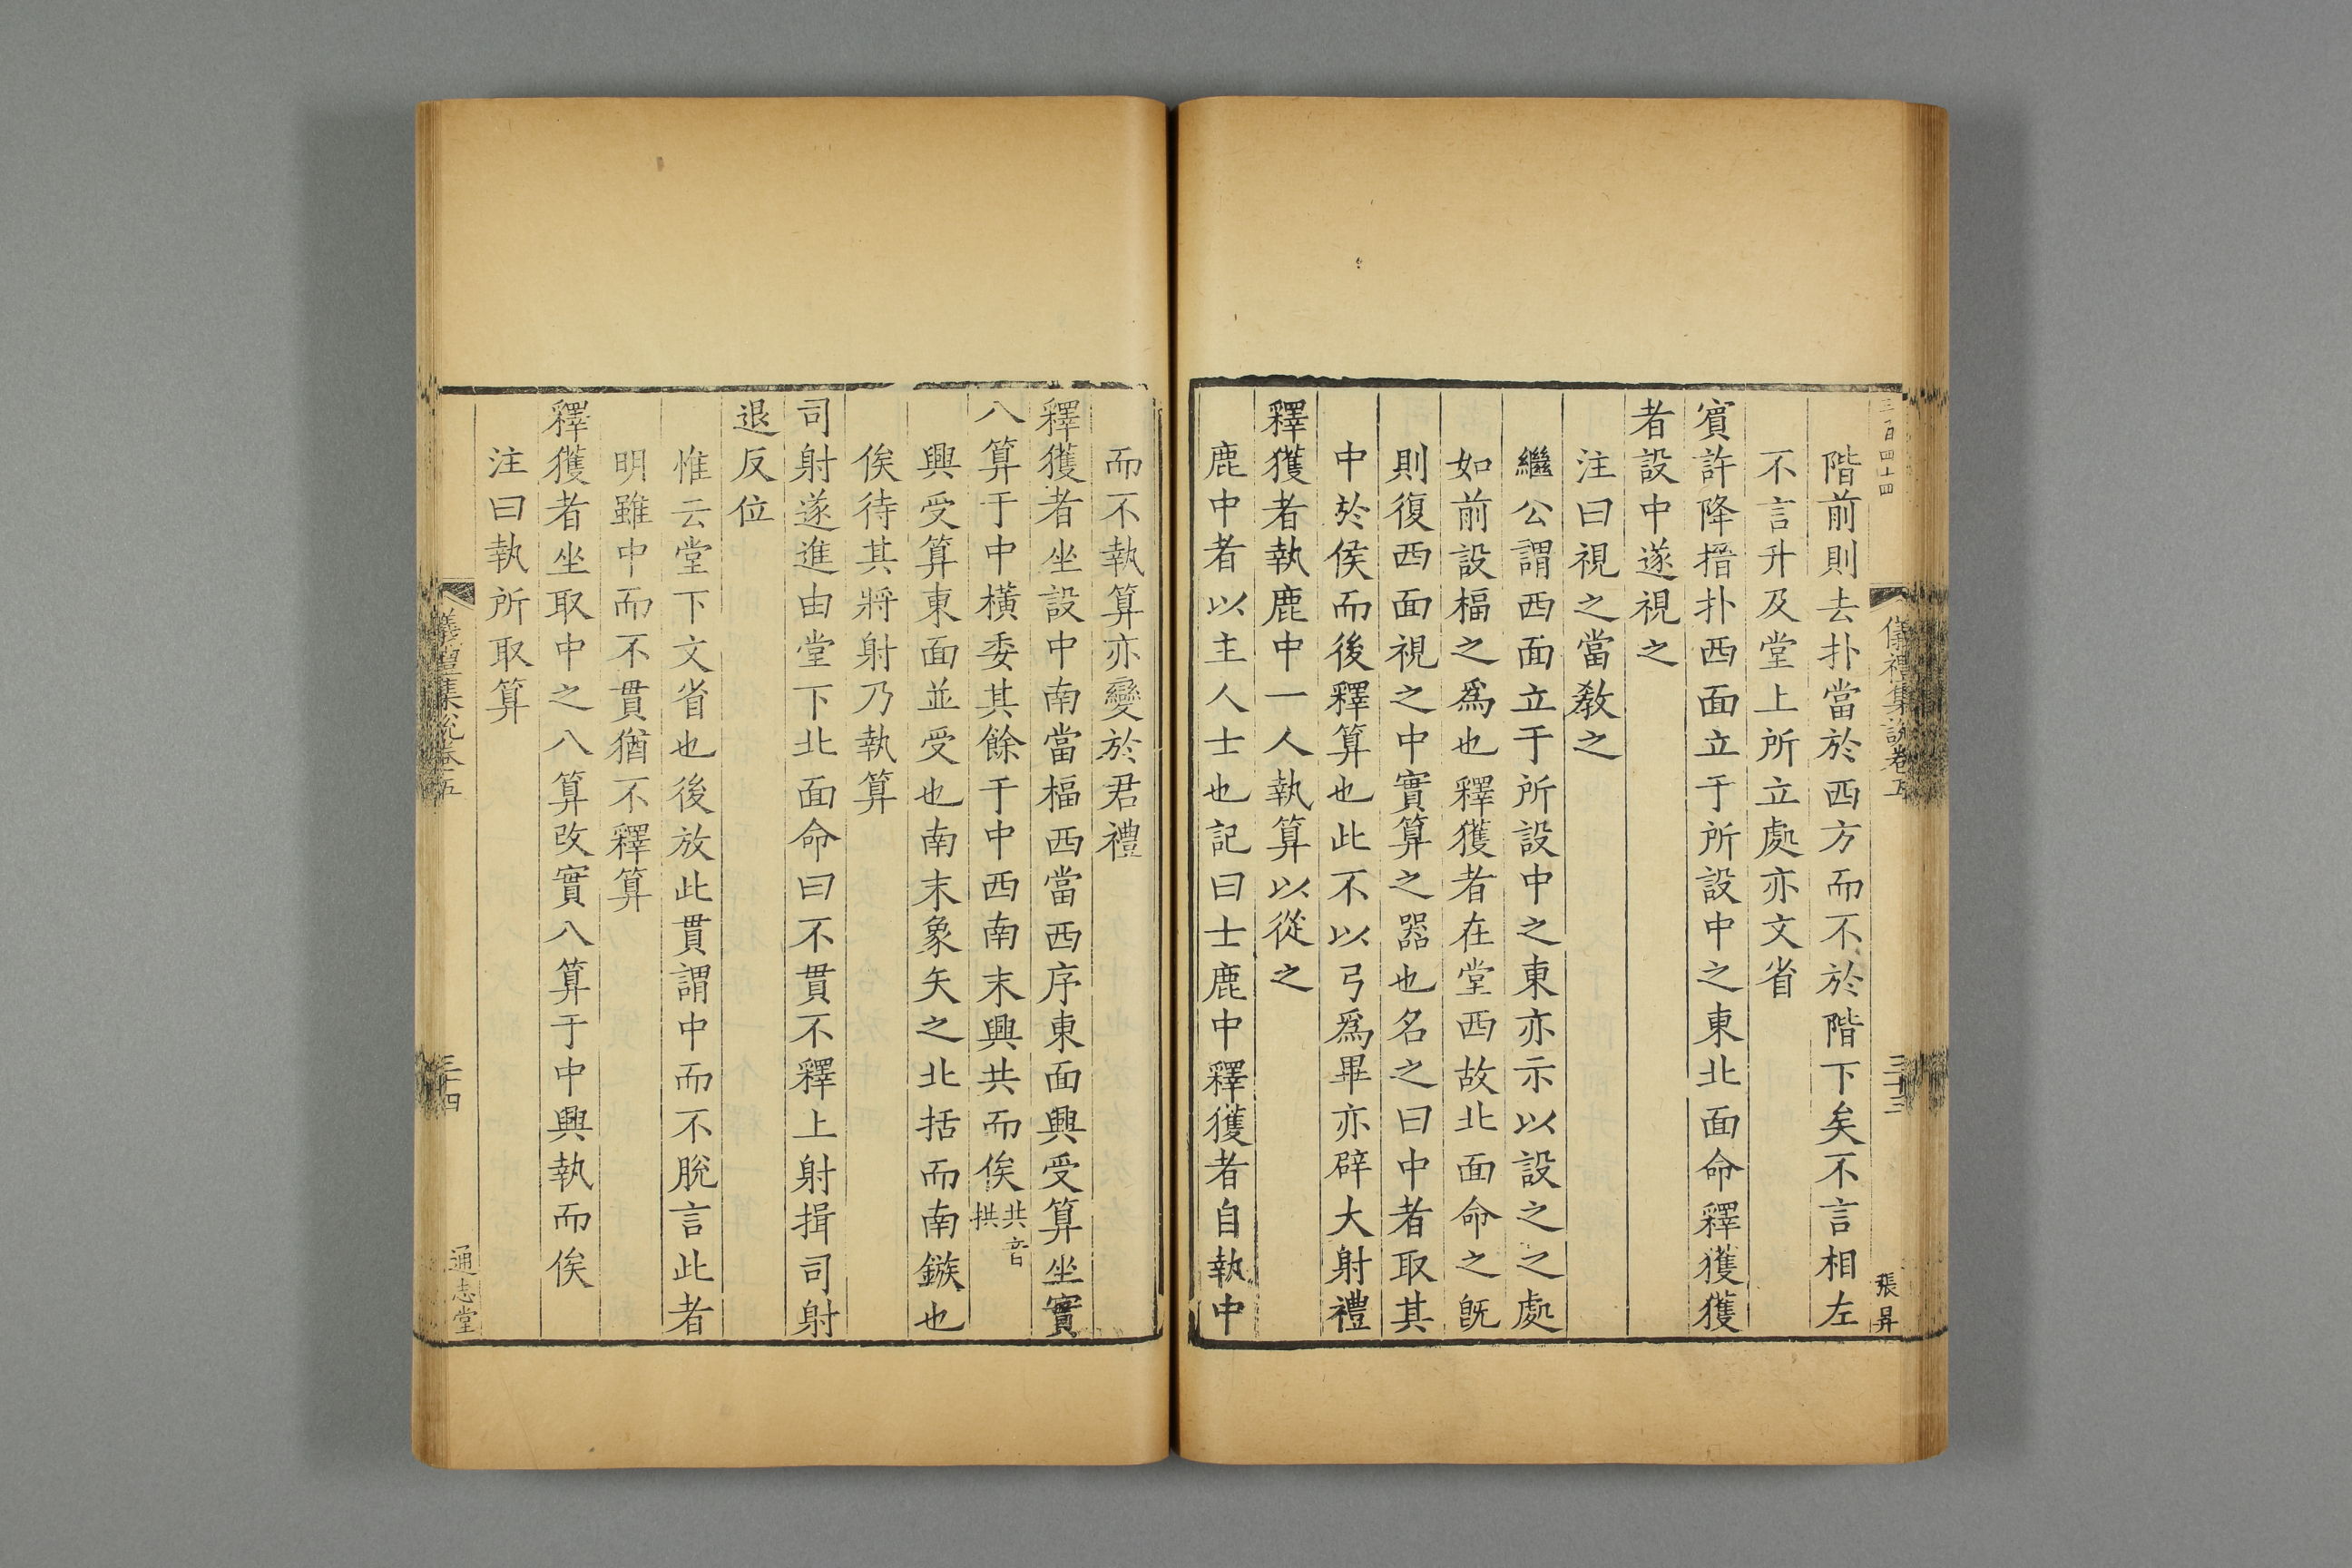 三百四十四
儀禮集說卷五
三十三
張昇
階前則去扑當於西方而不於階下矣不言相左
不言升及堂上所立處亦文省
賔許降搢扑西面立于所設中之東北面命釋獲獲
者設中遂視之
注曰視之當教之
繼公謂西面立于所設中之東亦示以設之之處
如前設楅之爲也釋獲者在堂西故北面命之旣
則復西面視之中實算之器也名之曰中者取其
中於侯而後釋算也此不以弓爲畢亦辟大射禮
釋獲者執鹿中一人執算以從之
鹿中者以主人士也記曰士鹿中釋獲者自執中
而不執算亦變於君禮
釋獲者坐設中南當楅西當西序東面興受算坐實
八算于中橫委其餘于中西南末興共而俟共音拱
興受算東面並受也南末象矢之北括而南鏃也
俟待其將射乃執算
司射遂進由堂下北面命曰不貫不釋上射揖司射
退反位
惟云堂下文省也後放此貫謂中而不脫言此者
明雖中而不貫猶不釋算
釋獲者坐取中之八算改實八算于中興執而俟
注曰執所取算
儀禮集說卷五
三十四
通志堂